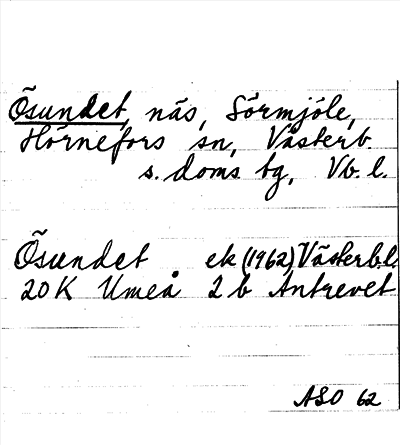 Ösundet, näs, Sörmjöle,
Hörnefors sn, Västerb.
s. doms bg, Vb. l.
Ösundet ek (1962) Västerb.l.
20K Umeå 2b Antrevet
ASO 62